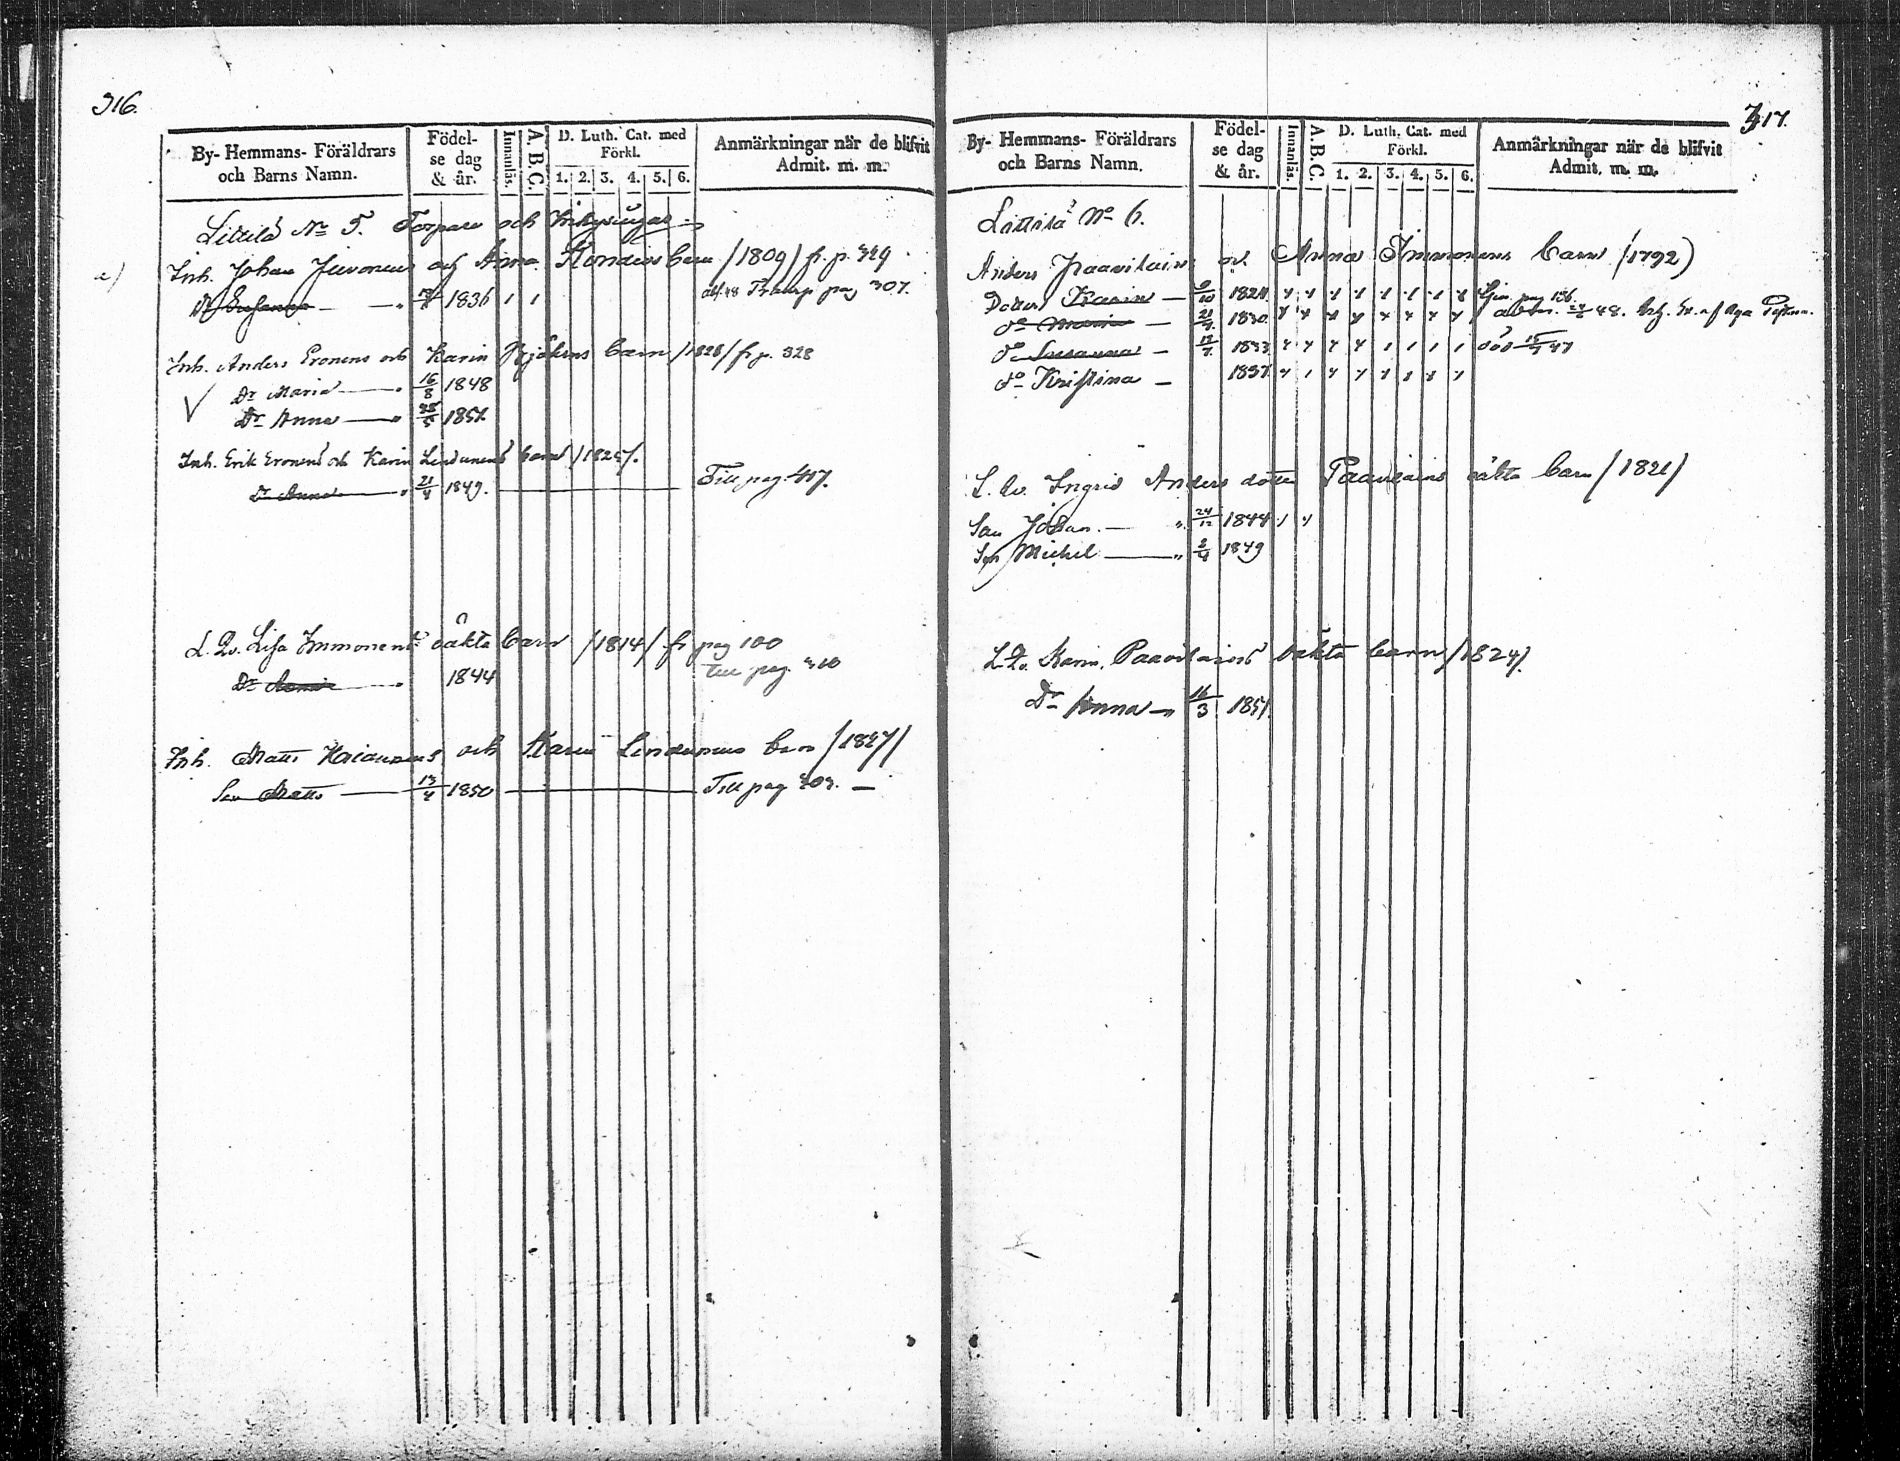 316.
By- Hemmans- Föräldrars och Barns Namn.
Födel- se dag & år.
Innanläs.
A. B. C.
D. Luth. Cat. med Förkl.
1. 2. 3. 4. 5. 6.
Anmärkningar när de blifvit Admit. m. m.
Littilä No 5. Torpare och
a)
Inh. Johan Juvonens och Anna Kondias barn /1809/ fr. p. 329
Dr Susanna — " 1836 1 1 pag 307.
Inh. Anders Eronens och Karin barn /1828/ fr p. 328
Dr Maria — " 16/8 1848
Dr Anna — " 1851
Inh. Erik Eronens och Karin Lindunens barn /1825/.
Dr Anna — " 21/4 1849. — Till pag. 417.
L. Qv. Lisa Immonens oäkta barn /1814/ fr pag 100
Dr — " 1844 till pag 310
Inh. Matts och Karin Lindunens barn /1827/
Son Matts — 13/4 1850 — Till pag 303. —
317.
By- Hemmans- Föräldrars och Barns Namn.
Födel- se dag & år.
Innanläs.
A. B. C.
D. Luth. Cat. med Förkl.
1. 2. 3. 4. 5. 6.
Anmärkningar när de blifvit Admit. m. m.
Littilä No 6.
Anders Paavilains och Anna Immonens barn /1792)
Dotter Karin — 9/10 1824 pag 156.
do Maria — 21/7 1830 48.
do Susanna — 1833 47
do Kristina — 1837
L. Qv. Ingrid Anders dotter Paavilains oäkta barn /1821/
Son Johan — " 24/12 1844
Son Michel — " 2/4 1849
L. Qv. Karin Paavilains oäkta barn /1824/.
Dr Anna — " 16/3 1851